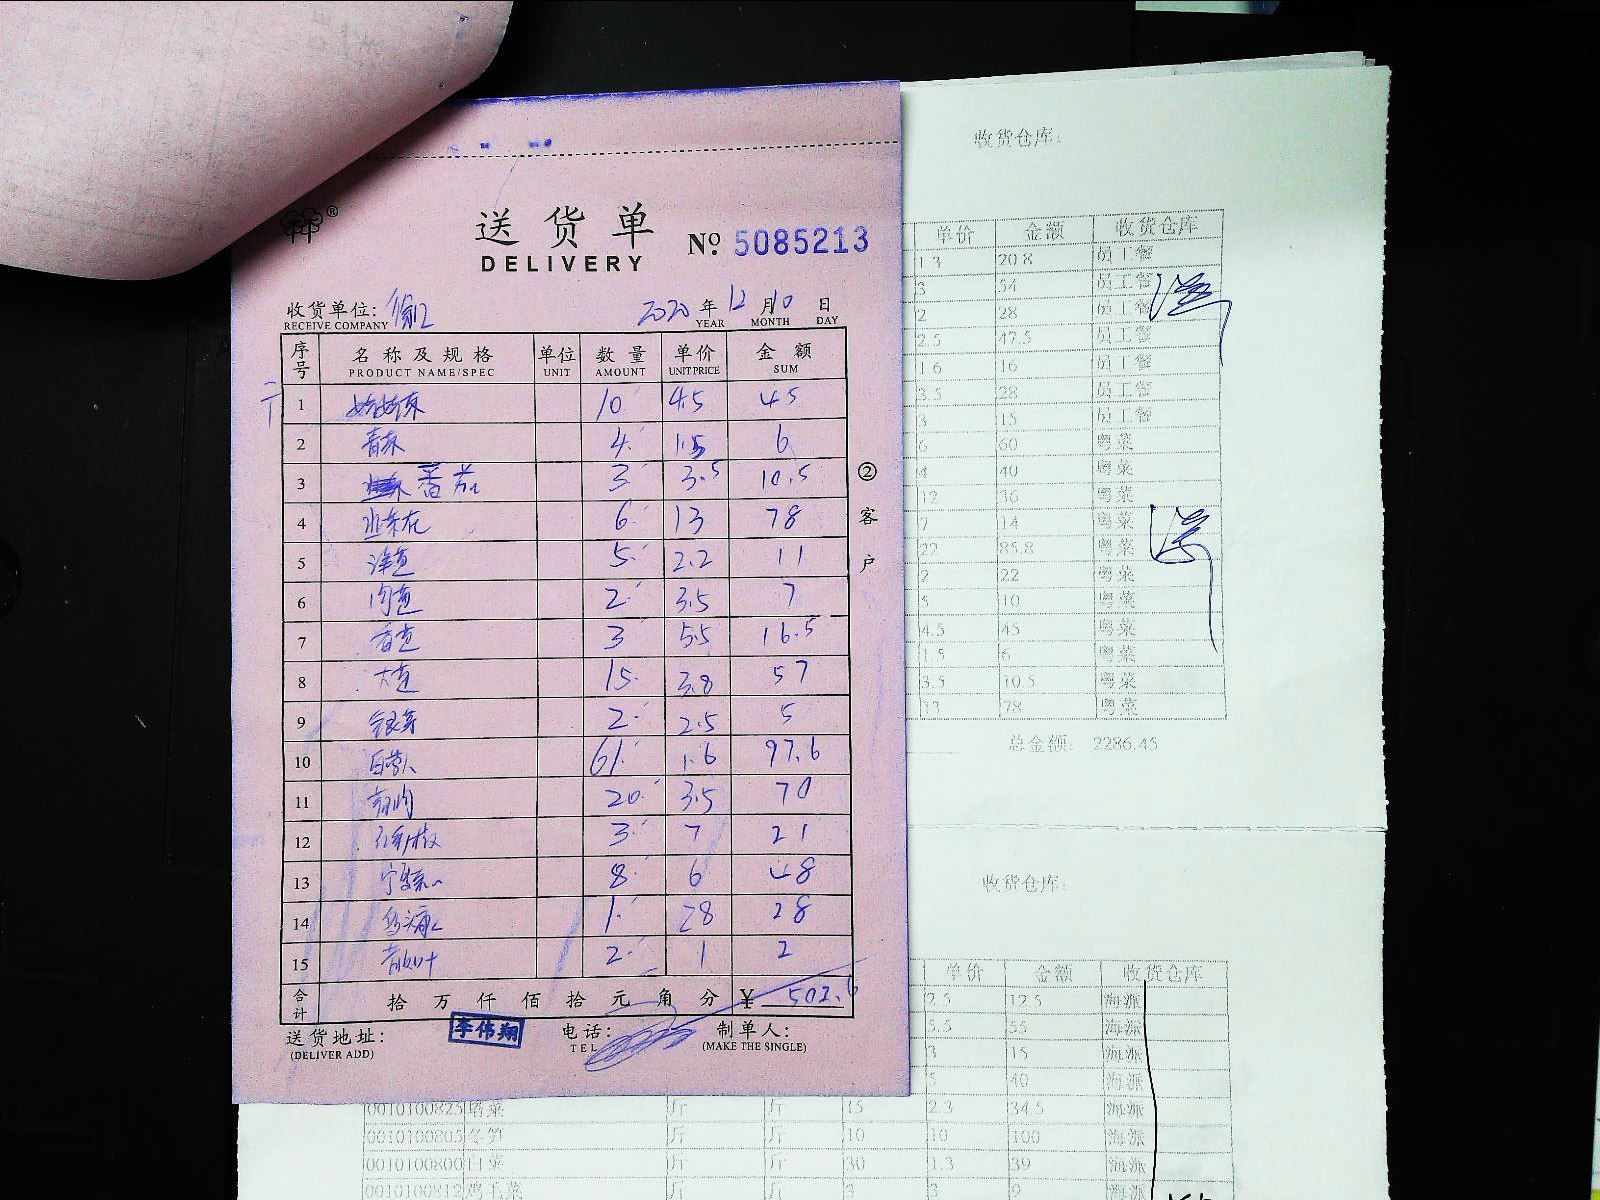 送货单
DELIVERY
№ 5085213
收货单位:
RECEIVE COMPANY
2020 年 12 月 10 日
YEAR MONTH DAY
序号 名称及规格 单位 数量 单价 金额
PRODUCT NAME/SPEC UNIT AMOUNT UNIT PRICE SUM
1 娃娃菜 10 4.5 45
2 青菜 4 1.5 6
3 番茄 3 3.5 10.5
4 西兰花 6 13 78
5 洋芹 5 2.2 11
6 2 3.5 7
7 香芹 3 5.5 16.5
8 15 3.8 57
9 银芽 2 2.5 5
10 白萝卜 61 1.6 97.6
11 20 3.5 70
12 3 7 21
13 8 6 48
14 1 28 28
15 2 1 2
合计 拾 万 仟 佰 拾 元 角 分 ¥ 502.6
送货地址:
(DELIVER ADD)
李伟翔
电话:
TEL
制单人:
(MAKE THE SINGLE)
② 客户
收货仓库:
单价 金额 收货仓库
13 20.8 员工餐
3 54 员工餐
2 28 员工餐
2.5 47.5 员工餐
1.6 16 员工餐
3.5 28 员工餐
3 15 员工餐
6 60 粤菜
4 40 粤菜
12 36 粤菜
7 14 粤菜
22 85.8 粤菜
2 22 粤菜
5 10 粤菜
4.5 45 粤菜
1.5 6 粤菜
3.5 10.5 粤菜
13 78 粤菜
总金额: 2286.45
收货仓库:
单价 金额 收货仓库
2.5 12.5 海派
5.5 55 海派
3 15 海派
5 40 海派
0010100825 塔菜 斤 斤 15 2.3 34.5 海派
0010100805 冬笋 斤 斤 10 10 100 海派
0010100800 白菜 斤 斤 30 1.3 39 海派
0010100812 鸡毛菜 斤 斤 3 3 9 海派